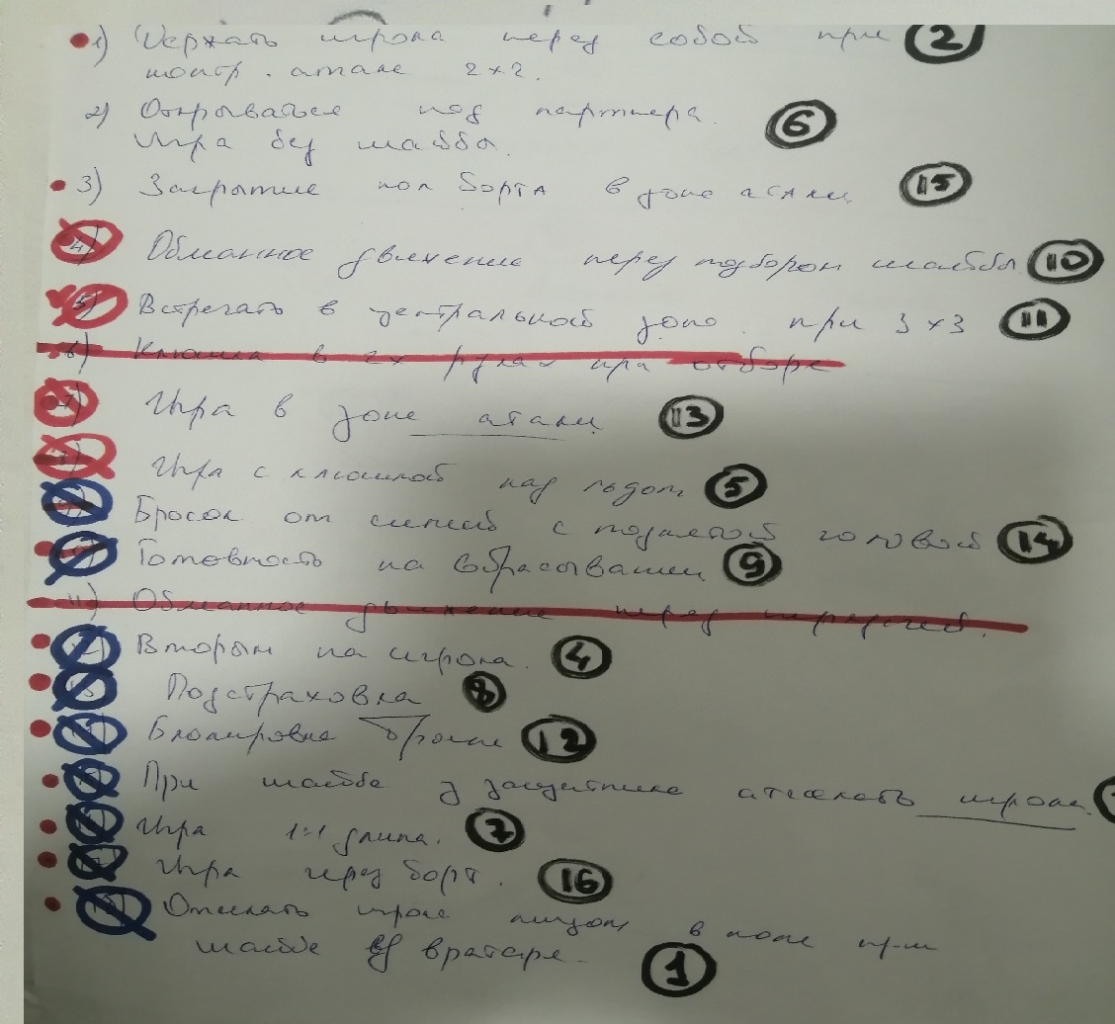 1) Держать игрока перед собой при 2
контр. атаке 2x2.
2) Открываться под партнера. 6
Игра без шайбы.
3) Закрытие пол борта в зоне атаки 15
4) Обманное движение перед подбором шайбы 10
5) Встречать в центральной зоне. при 3x3 11
6) Клюшка в 2х руках при отборе
Игра в зоне атаки 13
Игра с клюшкой над льдом 5
Бросок от синей с поднятой головой 14
Готовность на вбрасывании 9
11) Обманное движение перед передачей.
Вторым на игрока. 4
Подстраховка 8
Блокировка 12
При шайбе у защитника игрока.
Игра 1:1 длина. 7
Игра через борт. 16
Отсекать лицом в поле при
шайбе у вратаря. 1